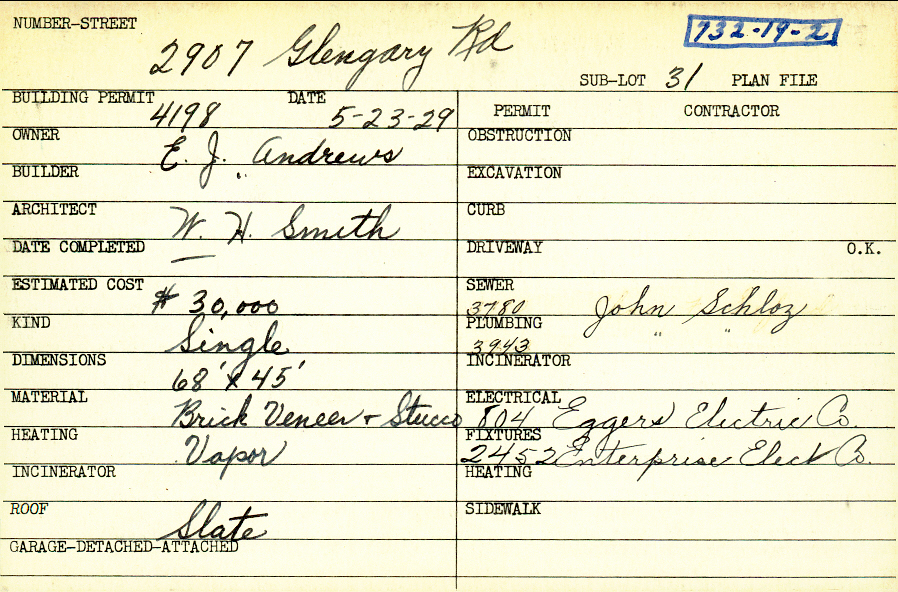 NUMBER-STREET 2907 Glengary Rd 732-19-2
SUB-LOT 31 PLAN FILE
BUILDING PERMIT 4198 DATE 5-23-29
PERMIT CONTRACTOR
OWNER E. J. Andrews
OBSTRUCTION
BUILDER "
EXCAVATION
ARCHITECT W. H. Smith
CURB
DATE COMPLETED —
DRIVEWAY O.K.
ESTIMATED COST $ 30,000
SEWER 3780 John Schloz
KIND Single
PLUMBING 3943 " "
DIMENSIONS 68' x 45'
INCINERATOR
MATERIAL Brick Veneer + Stucco
ELECTRICAL 804 Eggers Electric Co.
HEATING Vapor
FIXTURES 2452 Enterprise Elect Co.
INCINERATOR
HEATING
ROOF Slate
SIDEWALK
GARAGE-DETACHED-ATTACHED